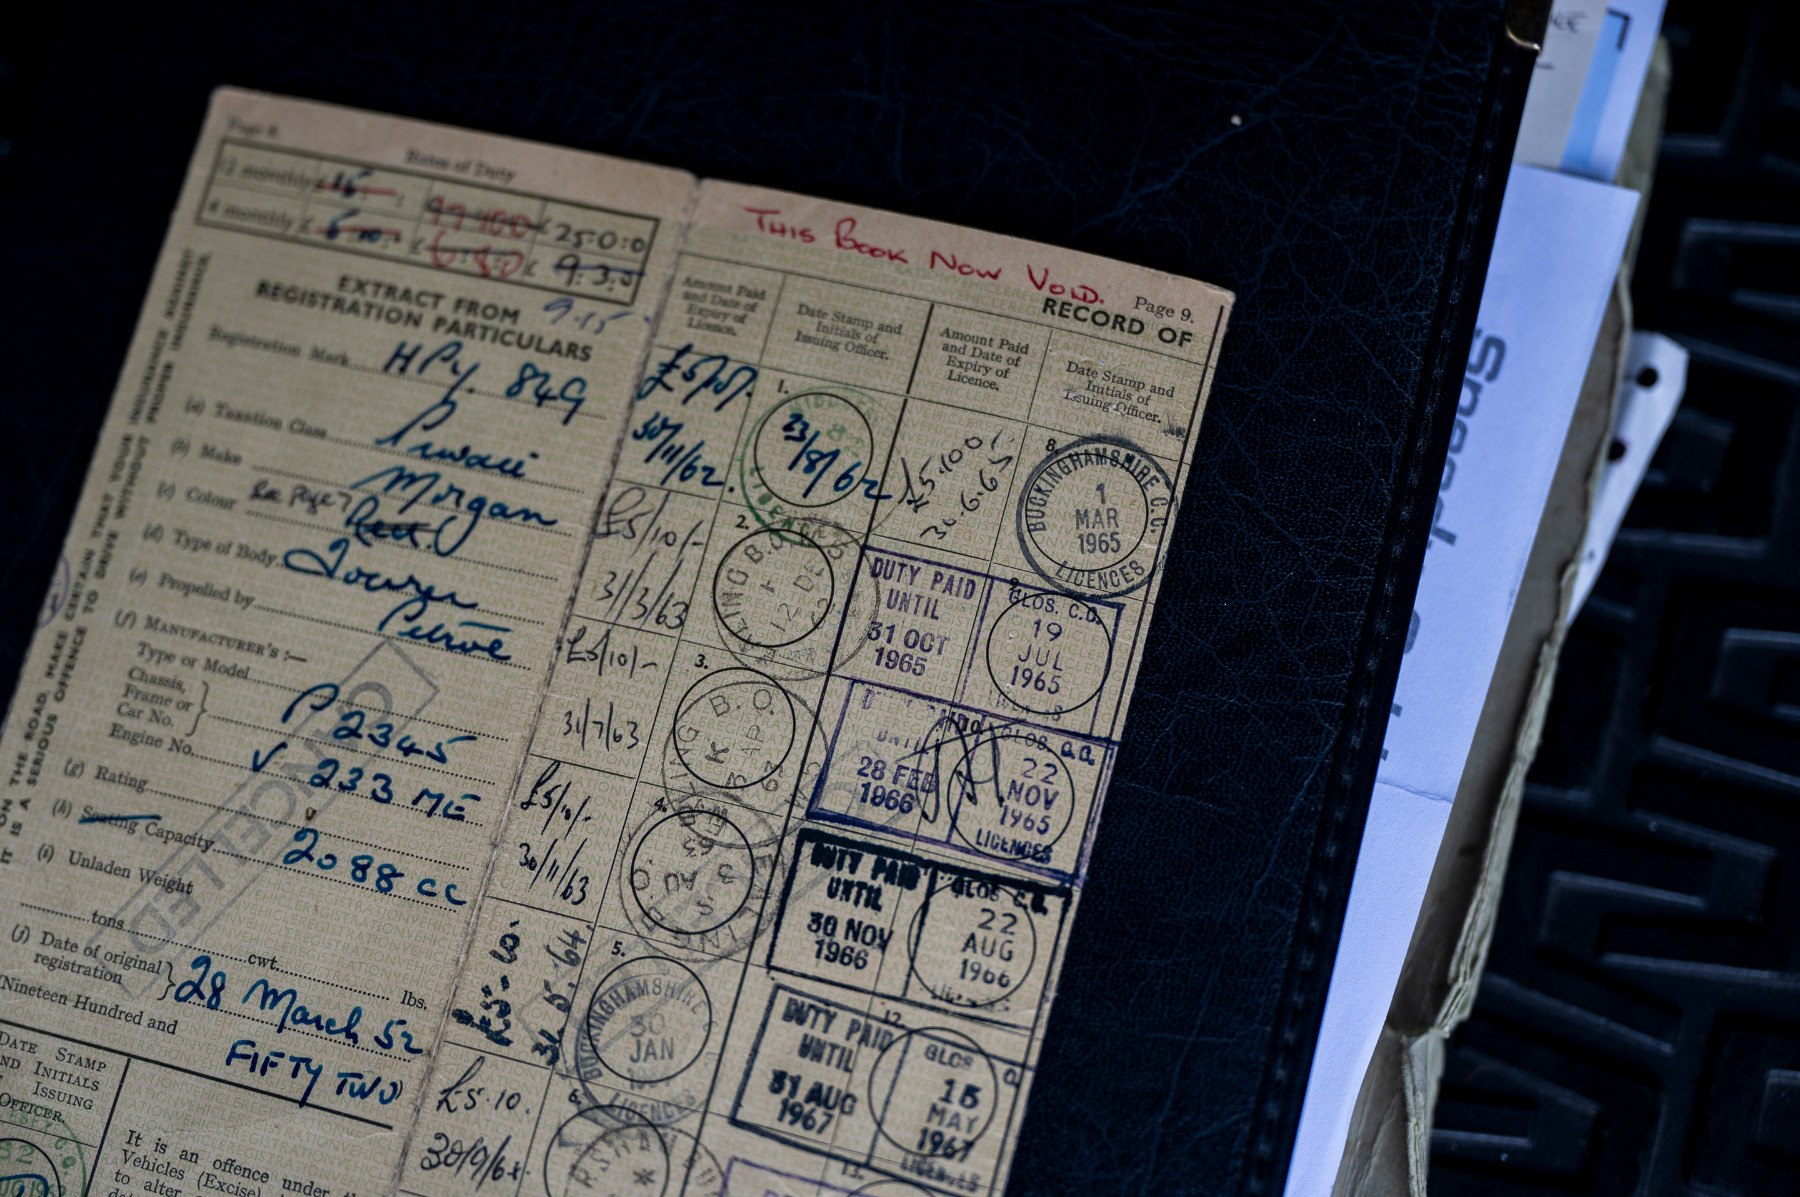 Page 8.
Rates of Duty
12 monthly £ 15
99 400 £ 25:0:0
4 monthly £
6.8.0 £ 9.3.0
9.15
EXTRACT FROM
REGISTRATION PARTICULARS
Registration Mark HPY. 849
(a) Taxation Class Private
(b) Make Morgan
(c) Colour See Page 7 Red.
(d) Type of Body Tourer
(e) Propelled by Petrol
(f) MANUFACTURER'S :—
Type or Model
Chassis,
Frame or
Car No. P 2345
Engine No. V 233 ME
(g) Rating
(h) Seating Capacity 2088 CC
(i) Unladen Weight
tons cwt. lbs.
(j) Date of original
registration 28 March 52
Nineteen Hundred and
FIFTY TWO
CANCELLED
DATE STAMP
AND INITIALS
ISSUING
OFFICER.
It is an offence under
Vehicles (Excise)
to alter
INSURANCE AGAINST
ON THE ROAD, MAKE CERTAIN THAT YOUR
IS A SERIOUS OFFENCE TO DRIVE WITHOUT PROPER INSURANCE.
THIS BOOK NOW VOID.
Page 9.
RECORD OF
Amount Paid
and Date of
Expiry of
Licence.
Date Stamp and
Initials of
Issuing Officer.
Amount Paid
and Date of
Expiry of
Licence.
Date Stamp and
Initials of
Issuing Officer.
1.
30/11/62.
23/8/62
2.
£5/10/-
31/3/63
12 DE
3.
£5/10/-
31/7/63
4.
£5/10/-
30/11/63
5.
£5.10.
31.5.64.
BUCKINGHAMSHIRE
30
JAN
LICENCES
6.
£5.10.
8.
£5.10.0
30.6.65
BUCKINGHAMSHIRE C.C.
1
MAR
1965
LICENCES
9.
DUTY PAID
UNTIL
31 OCT
1965
GLOS. C.C.
19
JUL
1965
10.
UNTIL
28 FEB
1966
GLOS. C.C.
22
NOV
1965
LICENCES
DUTY PAID
UNTIL
30 NOV
1966
GLOS C.C.
22
AUG
1966
12.
DUTY PAID
UNTIL
31 AUG
1967
GLOS
15
MAY
1967
LICENCES
13.